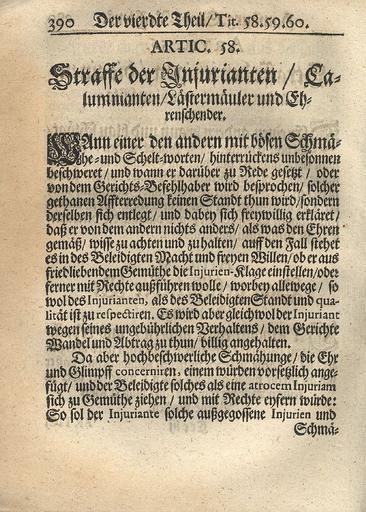 390 Der vierdte Theil / Tit. 58.59.60.
ARTIC. 58.
Straffe der Injurianten / Ca-
lumnianten / Lästermäuler und Eh-
renschender.
WAnn einer den andern mit bösen Schmä-
he- und Schelt-worten / hinterrückens unbesonnen
beschweret / und wann er darüber zu Rede gesetzt / oder
von dem Gerichts-Befehlhaber wird besprochen / solcher
gethanen Affterredung keinen Standt thun wird / sondern
derselben sich entlegt / und dabey sich freywillig erkläret /
daß er von dem andern nichts anders / als was den Ehren
gemäß / wisse zu achten und zu halten / auff den Fall stehet
es in des Beleidigten Macht und freyen Willen / ob er aus
friedliebendem Gemüthe die Injurien-Klage einstellen / oder
ferner mit Rechte außführen wolle / worbey allewege / so
wol des Injurianten, als des Beleidigten Standt und qua-
lität ist zu respectiren. Es wird aber gleichwol der Injuriant
wegen seines ungebührlichen Verhaltens / dem Gerichte
Wandel und Abtrag zu thun / billig angehalten.
Da aber hochbeschwerliche Schmähunge / die Ehr
und Glimpff concerniren, einem würden vorsetzlich ange-
fügt / und der Beleidigte solches als eine atrocem Injuriam
sich zu Gemüthe ziehen / und mit Rechte eyfern würde:
So sol der Injuriante solche außgegossene Injurien und
Schmä-